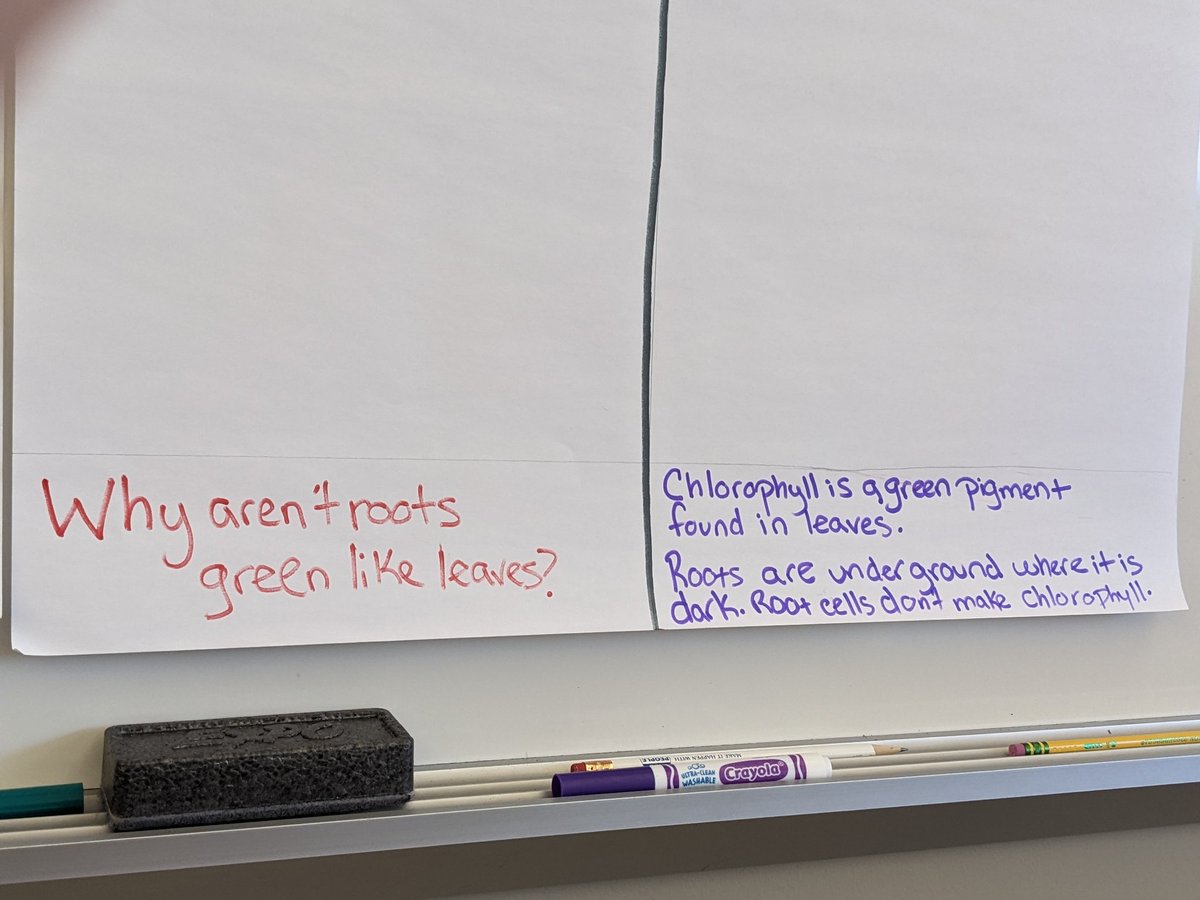 Why aren't roots
green like leaves?
Chlorophyll is a green pigment
found in leaves.
Roots are underground where it is
dark. Root cells don't make chlorophyll.
EXPO
MAKE IT HAPPEN WITH PEOPLE
ULTRA-CLEAN
WASHABLE
Crayola